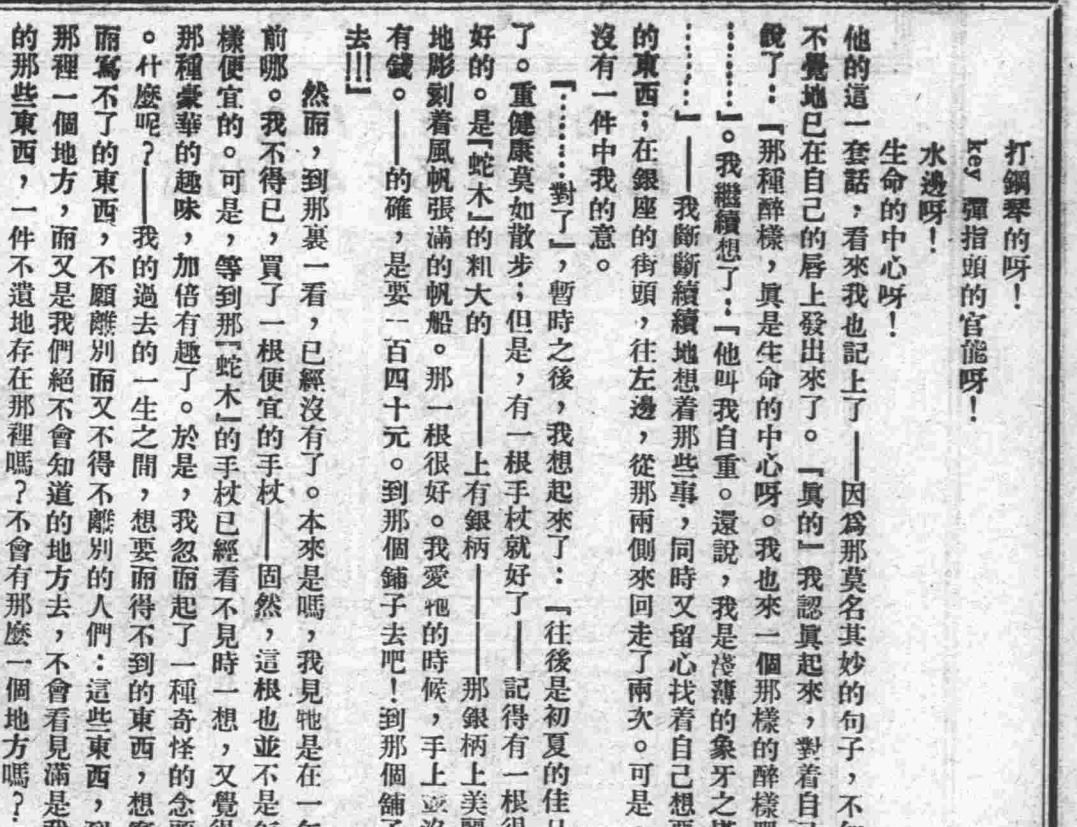 打鋼琴的呀！
key 彈指頭的官能呀！
水邊呀！
生命的中心呀！
他的這一套話，看來我也記上了——因爲那莫名其妙的句子，不
不覺地已在自己的唇上發出來了。『眞的』我認眞起來，對着自
說了：『那種醉樣，眞是生命的中心呀。我也來一個那樣的醉樣
………』。我繼續想了：『他叫我自重。還說，我是淺薄的象牙之
………』——我斷斷續續地想着那些事，同時又留心找着自己想
的東西；在銀座的街頭，往左邊，從那兩側來回走了兩次。可是
沒有一件中我的意。
『………對了』，暫時之後，我想起來了：『往後是初夏的佳
了。重健康莫如散步；但是，有一根手杖就好了——記得有一根
好的。是『蛇木』的粗大的————上有銀柄————那銀柄上美
地彫刻着風帆張滿的帆船。那一根很好。我愛牠的時候，手上並
有錢。——的確，是要一百四十元。到那個鋪子去吧！到那個鋪
去！！！』
然而，到那裏一看，已經沒有了。本來是嗎，我見牠是在一
前哪。我不得已，買了一根便宜的手杖——固然，這根也並不是
樣便宜的。可是，等到那『蛇木』的手杖已經看不見時一想，又覺
那種豪華的趣味，加倍有趣了。於是，我忽而起了一種奇怪的念
。什麼呢？——我的過去的一生之間，想要而得不到的東西，想
而寫不了的東西，不願離別而又不得不離別的人們：這些東西，
那裡一個地方，而又是我們絕不會知道的地方去，不會看見滿是
的那些東西，一件不遺地存在那裡嗎？不會有那麼一個地方嗎？